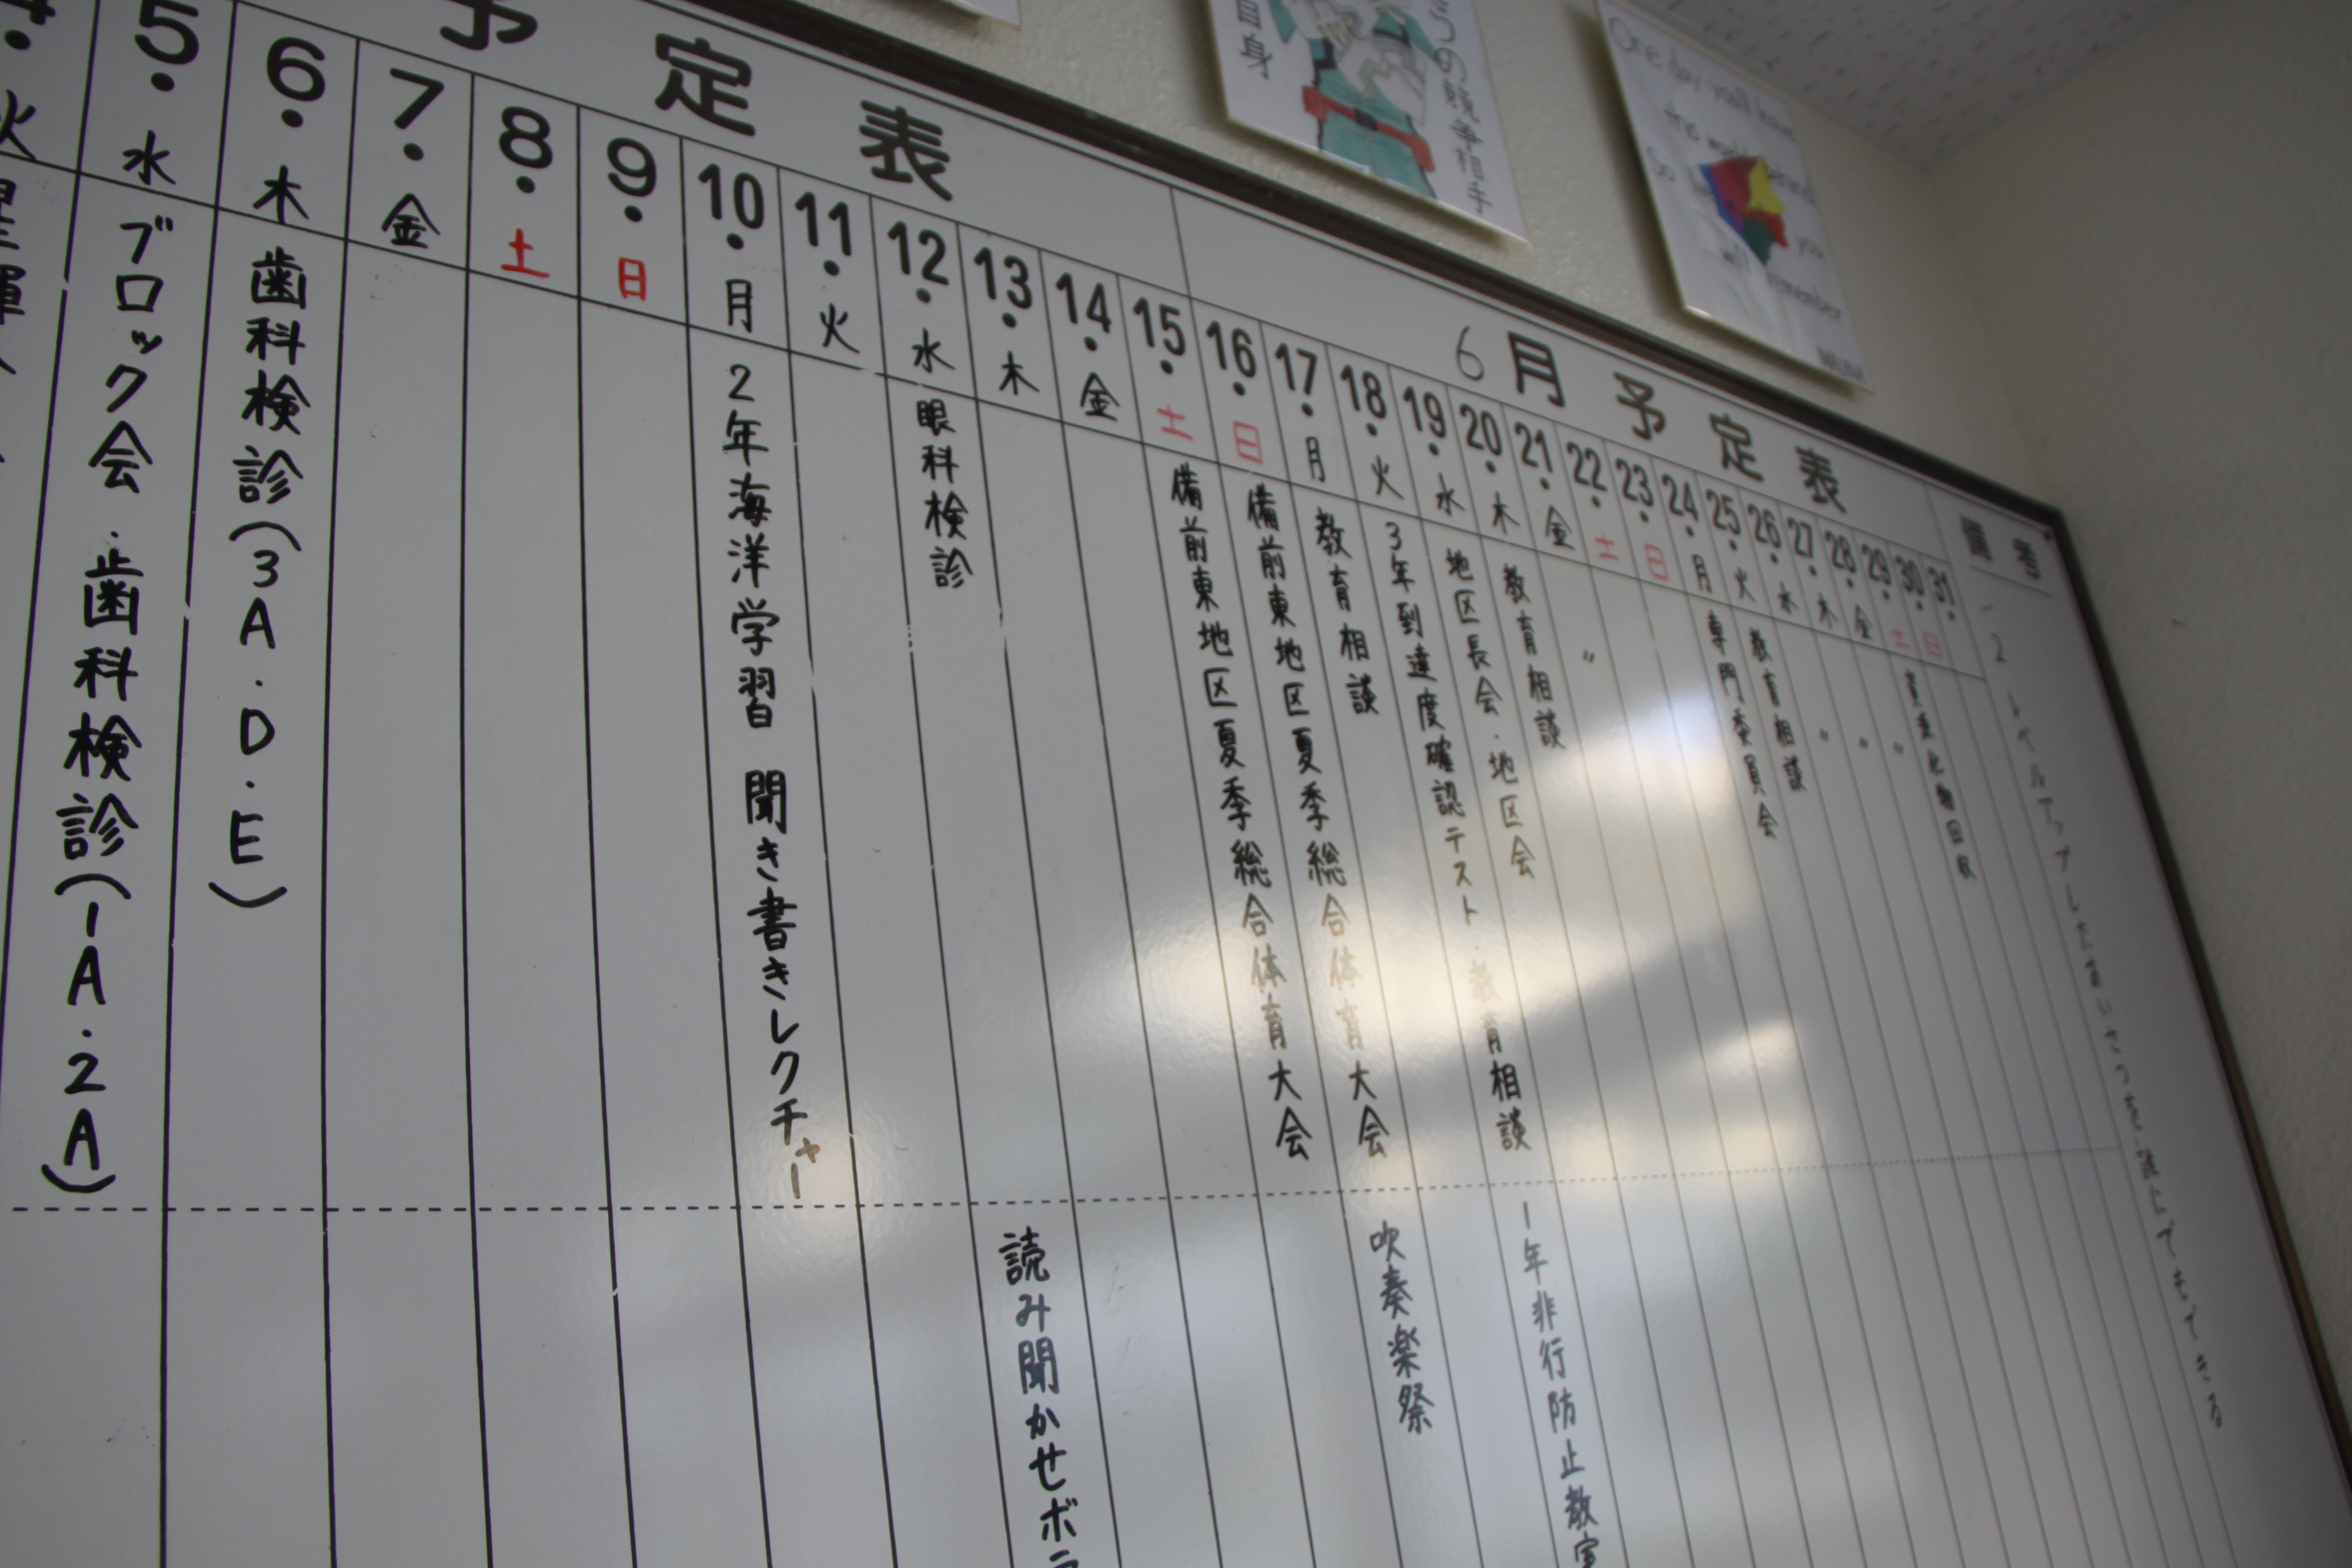 予定表
6月予定表
備考
火
5・水
ブロック会・歯科検診(1A・2A)
6・木
歯科検診(3A・D・E)
7・金
8・土
9・日
10・月
2年海洋学習 聞き書きレクチャー
11・火
12・水
眼科検診
13・木
読み聞かせボラ
14・金
15・土
備前東地区夏季総合体育大会
16・日
備前東地区夏季総合体育大会
17・月
教育相談
吹奏楽祭
18・火
3年到達度確認テスト・教育相談
19・水
地区長会・地区会
1年非行防止教室
20・木
教育相談
21・金
〃
22・土
23・日
24・月
専門委員会
25・火
教育相談
26・水
〃
27・木
〃
28・金
〃
29・土
資源化物回収
30・日
31・
レベルアップしたあいさつを誰にでもできる
自身
の競争相手
One day you'll leave
this world behind
So live
you
will remember